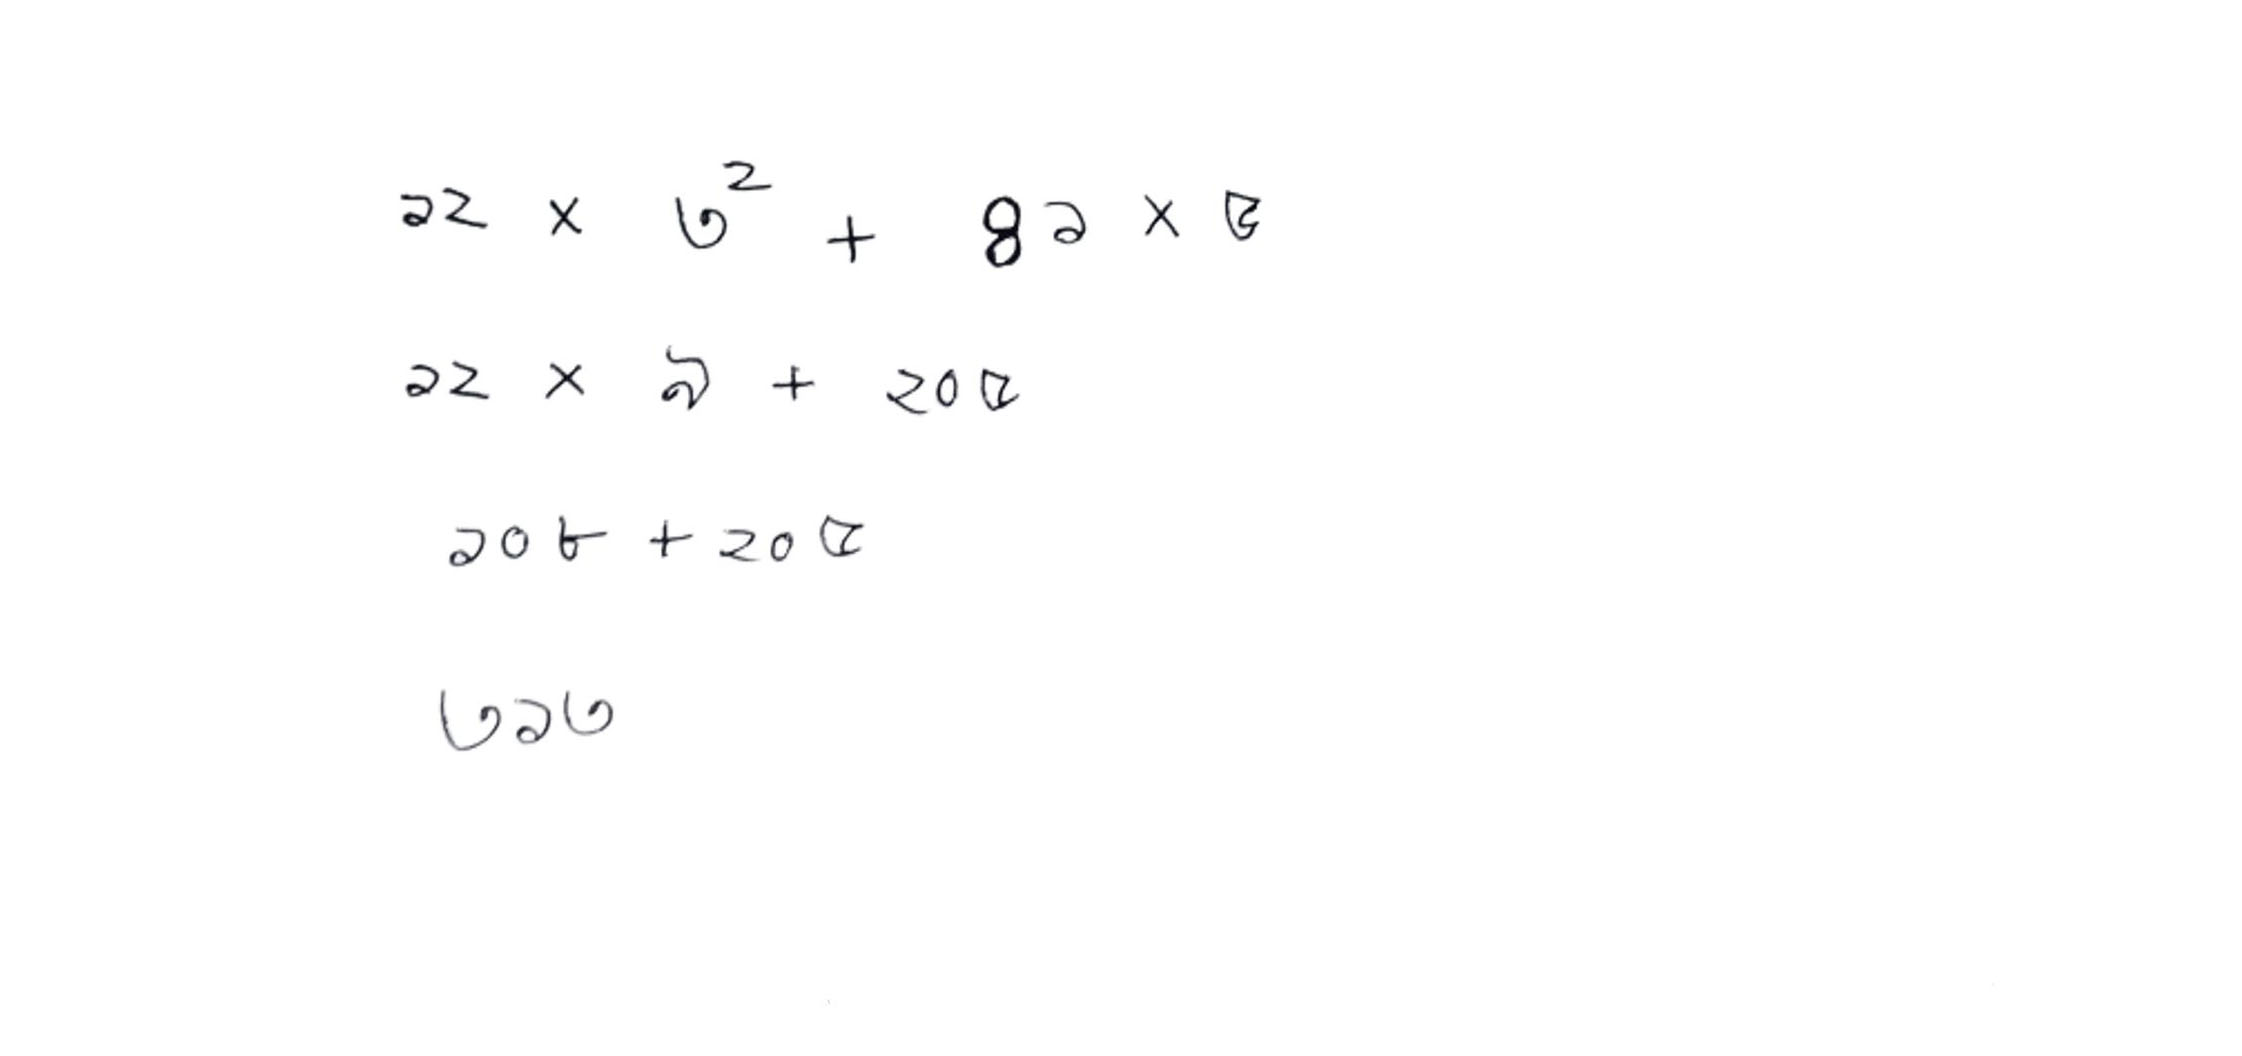 ১২ × ৩² + ৪১ × ৫
১২ × ৯ + ২০৫
১০৮ + ২০৫
৩১৩